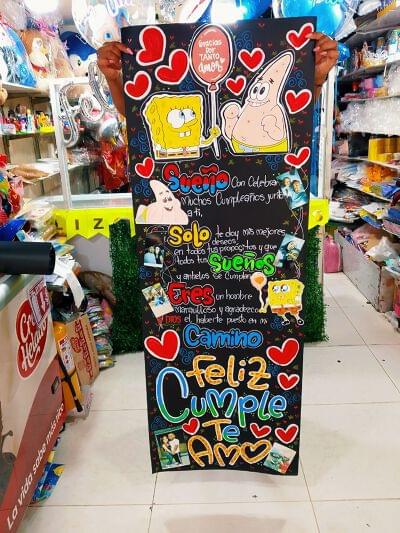 Gracias
Por
TANTO
Amor
Sueño Con Celebrar
Muchos Cumpleaños junto
a ti,
Solo te doy mis mejores
deseos,
en todos tus propósitos y que
todos tus Sueños
y anhelos se cumplan
Eres un hombre
maravilloso y agradezco
a DIOS el haberte puesto en mi
Camino
Feliz
Cumple
Te
Amo
La vida sabe más